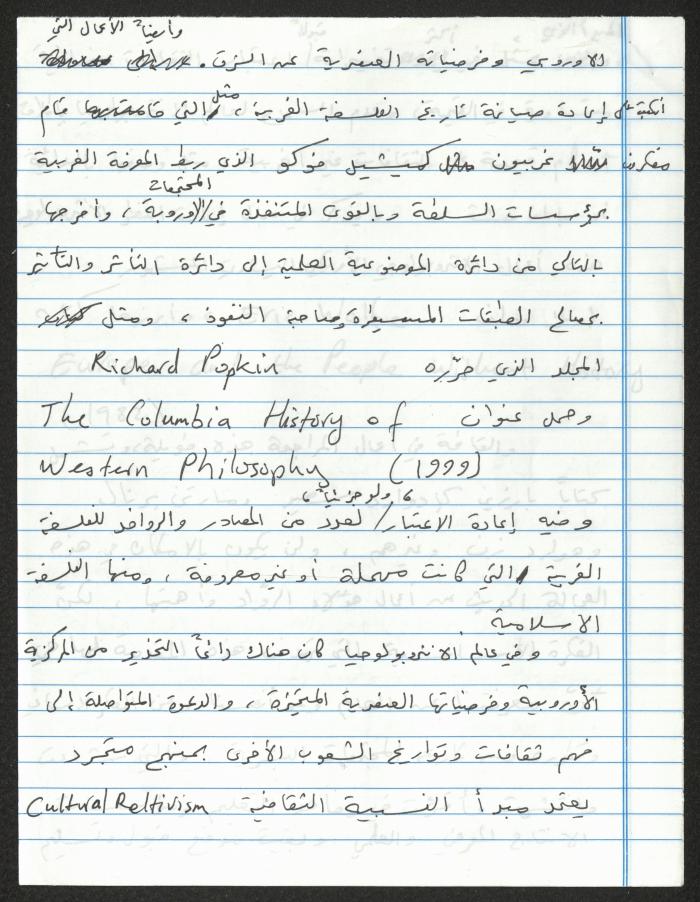 وأيضاً الأعمال التي
الاوروبي وفرضياته العنصرية عن الشرق.
انكبت على إعادة صياغة تاريخ الفلسفة الغربية، مثل التي قام
مفكرون غربيون كميشيل فوكو الذي ربط المعرفة الغربية
المجتمعات
بمؤسسات السلطة وبالقوى المتنفذة في الاوروبية، وأخرجها
بالتالي من دائرة الموضوعية العلمية إلى دائرة التأثر والتأثير
بمصالح الطبقات المسيطرة وصاحبة النفوذ، ومثل
المجلد الذي حرّره Richard Popkin
وحمل عنوان The Columbia History of
Western Philosophy (1999)
، ولو جزئياً،
وفيه إعادة الاعتبار لعدد من المصادر والروافد للفلسفة
الغربية التي كانت مهملة أو غير معروفة، ومنها الفلسفة
الاسلامية.
وفي عالم الانثروبولوجيا كان هناك دائماً التحذير من المركزية
الأوروبية وفرضياتها العنصرية المتحيّزة، والدعوة المتواصلة إلى
فهم ثقافات وتواريخ الشعوب الأخرى بمنهج متجرد
يعتمد مبدأ النسبية الثقافية Cultural Reltivism